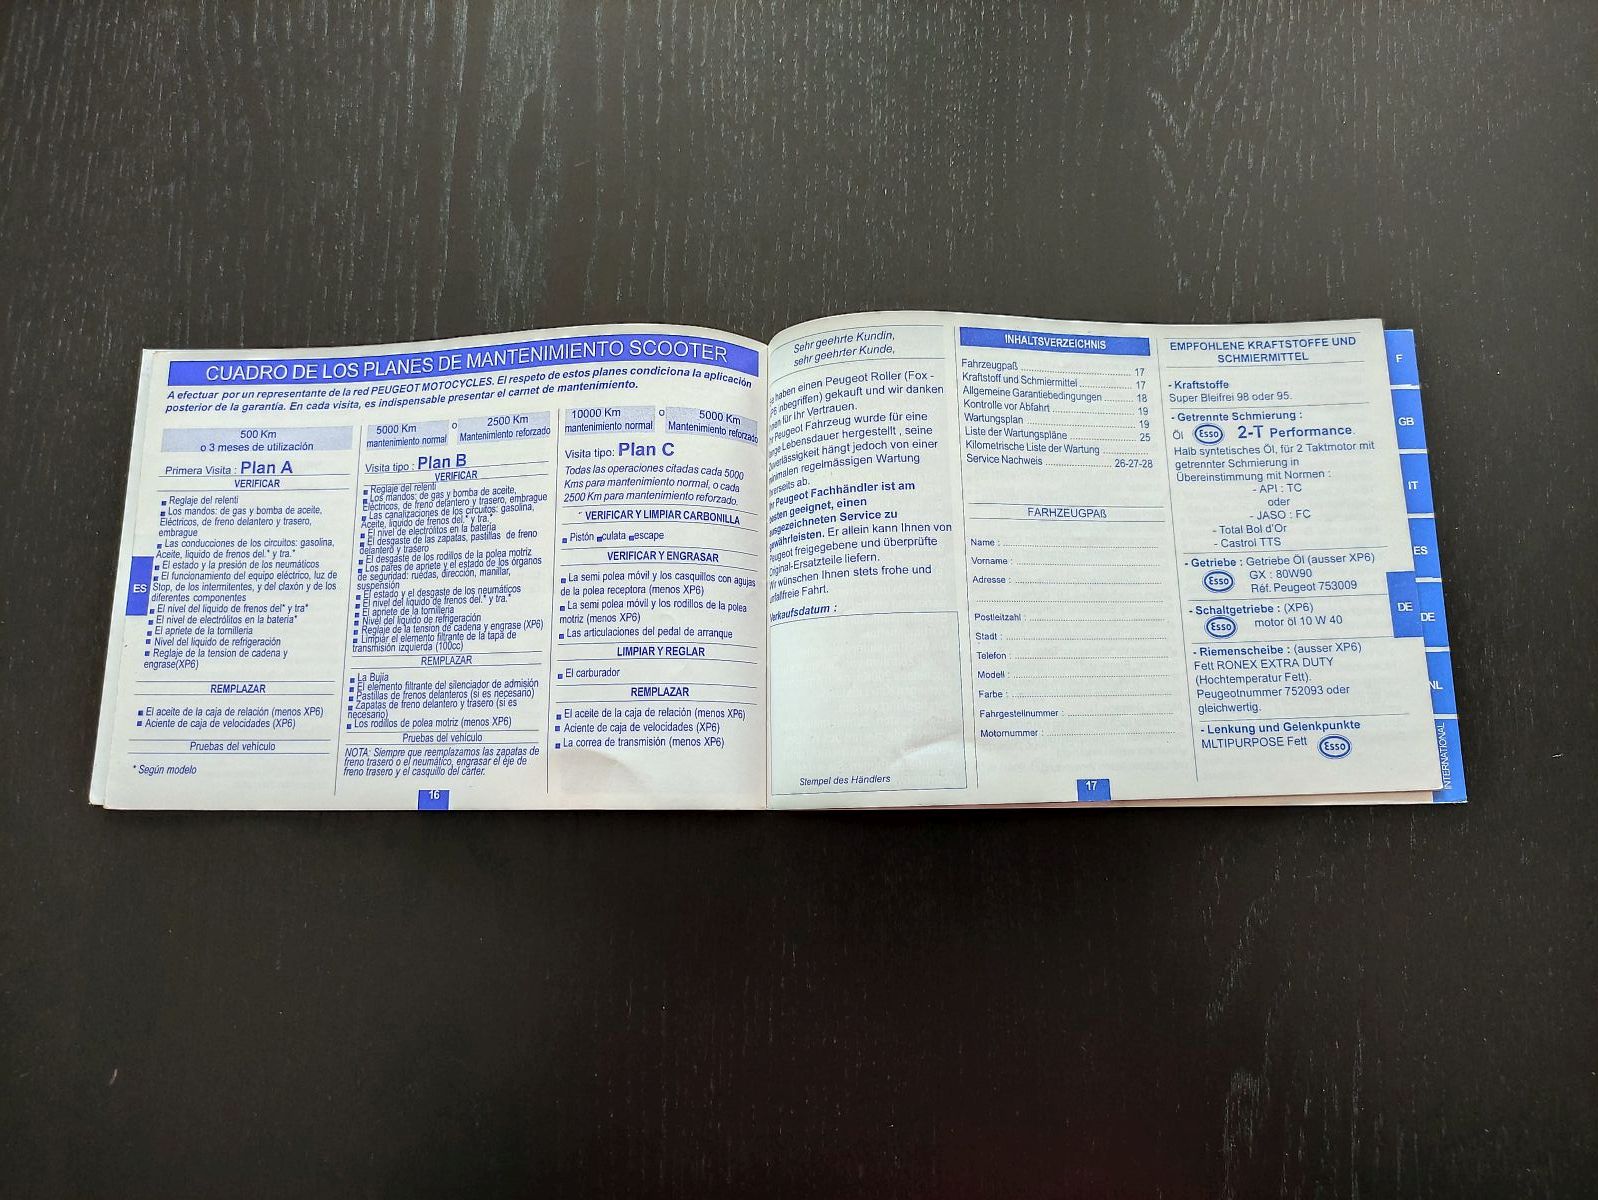 CUADRO DE LOS PLANES DE MANTENIMIENTO SCOOTER
A efectuar por un representante de la red PEUGEOT MOTOCYCLES. El respeto de estos planes condiciona la aplicación
posterior de la garantía. En cada visita, es indispensable presentar el carnet de mantenimiento.
500 Km
o 3 meses de utilización
Primera Visita : Plan A
VERIFICAR
Reglaje del relenti
Los mandos: de gas y bomba de aceite,
Eléctricos, de freno delantero y trasero,
embrague
Las conducciones de los circuitos: gasolina,
Aceite, liquido de frenos del.* y tra.*
El estado y la presión de los neumáticos
El funcionamiento del equipo eléctrico, luz de
Stop, de los intermitentes, y del claxón y de los
diferentes componentes
El nivel del liquido de frenos del* y tra*
El nivel de electrólitos en la bateria*
El apriete de la tornilleria
Nivel del liquido de refrigeración
Reglaje de la tension de cadena y
engrase(XP6)
REMPLAZAR
El aceite de la caja de relación (menos XP6)
Aciente de caja de velocidades (XP6)
Pruebas del vehículo
* Según modelo
ES
5000 Km
mantenimiento normal
o
2500 Km
Mantenimiento reforzado
Visita tipo : Plan B
VERIFICAR
Reglaje del relenti
Los mandos: de gas y bomba de aceite,
Eléctricos, de freno delantero y trasero, embrague
Las canalizaciones de los circuitos: gasolina,
Aceite, liquido de frenos del.* y tra.*
El nivel de electrólitos en la batería
El desgaste de las zapatas, pastillas de freno
delantero y trasero
El desgaste de los rodillos de la polea motriz
Los pares de apriete y el estado de los órganos
de seguridad: ruedas, dirección, manillar,
suspensión
El estado y el desgaste de los neumáticos
El nivel del liquido de frenos del.* y tra.*
El apriete de la tornilleria
Nivel del liquido de refrigeración
Reglaje de la tension de cadena y engrase (XP6)
Limpiar el elemento filtrante de la tapa de
transmisión izquierda (100cc)
REMPLAZAR
La Bujía
El elemento filtrante del silenciador de admisión
Pastillas de frenos delanteros (si es necesario)
Zapatas de freno delantero y trasero (si es
necesario)
Los rodillos de polea motriz (menos XP6)
Pruebas del vehículo
NOTA: Siempre que reemplazamos las zapatas de
freno trasero o el neumático, engrasar el eje de
freno trasero y el casquillo del cárter.
16
10000 Km
mantenimiento normal
o
5000 Km
Mantenimiento reforzado
Visita tipo: Plan C
Todas las operaciones citadas cada 5000
Kms para mantenimiento normal, o cada
2500 Km para mantenimiento reforzado.
VERIFICAR Y LIMPIAR CARBONILLA
Pistón culata escape
VERIFICAR Y ENGRASAR
La semi polea móvil y los casquillos con agujas
de la polea receptora (menos XP6)
La semi polea móvil y los rodillos de la polea
motriz (menos XP6)
Las articulaciones del pedal de arranque
LIMPIAR Y REGLAR
El carburador
REMPLAZAR
El aceite de la caja de relación (menos XP6)
Aciente de caja de velocidades (XP6)
La correa de transmisión (menos XP6)
Sehr geehrte Kundin,
sehr geehrter Kunde,
haben einen Peugeot Roller (Fox -
inbegriffen) gekauft und wir danken
für Ihr Vertrauen.
Peugeot Fahrzeug wurde für eine
Lebensdauer hergestellt , seine
Zuverlässigkeit hängt jedoch von einer
regelmässigen Wartung
ab.
Peugeot Fachhändler ist am
geeignet, einen
Service zu
Er allein kann Ihnen von
Peugeot freigegebene und überprüfte
Original-Ersatzteile liefern.
wünschen Ihnen stets frohe und
Fahrt.
Verkaufsdatum :
Stempel des Händlers
INHALTSVERZEICHNIS
Fahrzeugpaß 17
Kraftstoff und Schmiermittel 17
Allgemeine Garantiebedingungen 18
Kontrolle vor Abfahrt 19
Wartungsplan 19
Liste der Wartungspläne 25
Kilometrische Liste der Wartung
Service Nachweis 26-27-28
FARHZEUGPAß
Name :
Vorname :
Adresse :
Postleitzahl :
Stadt :
Telefon :
Modell :
Farbe :
Fahrgestellnummer :
Motornummer :
17
EMPFOHLENE KRAFTSTOFFE UND
SCHMIERMITTEL
- Kraftstoffe
Super Bleifrei 98 oder 95.
- Getrennte Schmierung :
Öl Esso 2-T Performance.
Halb syntetisches Öl, für 2 Taktmotor mit
getrennter Schmierung in
Übereinstimmung mit Normen :
- API : TC
oder
- JASO : FC
- Total Bol d'Or
- Castrol TTS
- Getriebe : Getriebe Öl (ausser XP6)
Esso GX : 80W90
Réf. Peugeot 753009
- Schaltgetriebe : (XP6)
Esso motor öl 10 W 40
- Riemenscheibe : (ausser XP6)
Fett RONEX EXTRA DUTY
(Hochtemperatur Fett).
Peugeotnummer 752093 oder
gleichwertig.
- Lenkung und Gelenkpunkte
MLTIPURPOSE Fett Esso
F
GB
IT
ES
DE
DE
NL
INTERNATIONAL